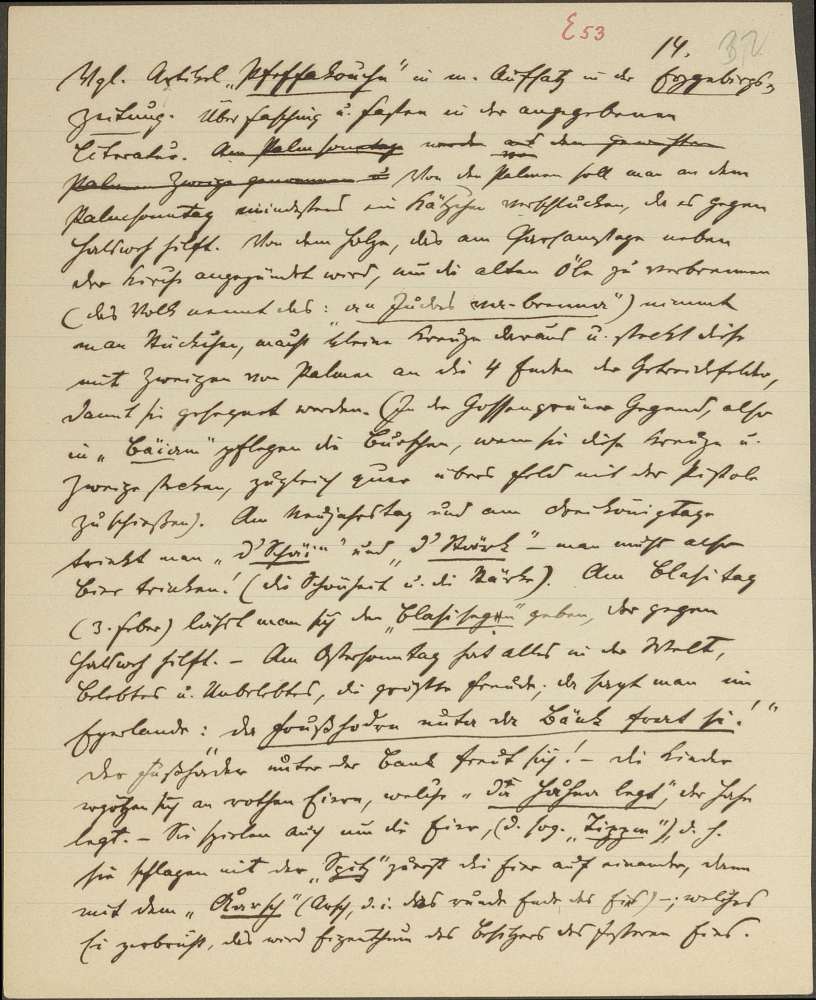 E 53
14.
Vgl. Artikel „Pfeffakoucha" in m. Aufsatz in der Erzgebirgs-
zeitung. Über Fasching u. Fasten in der angegebenen
Literatur. Am Palmsonntage werden aus den geweihten
Palmen Zweige genommen u Von den Palmen soll man an dem
Palmsonntag mindestens ein Kätzchen verschlucken, da es gegen
Halsweh hilft. Von dem Holze, das am Charsamstage neben
der Kirche angezündet wird, um die alten Öle zu verbrennen
(das Volk nennt das: den Judas ver-brenna") nimmt
man Stückchen, macht kleine Kreuze daraus u. steckt diese
mit Zweigen von Palmen an die 4 Enden der Getreidefelder,
damit sie gesegnet werden. (In der Gossengrüner Gegend, also
in „Bäiarn" pflegen die Burschen, wenn sie diese Kreuze u.
Zweige stecken, zugleich quer übers Feld mit der Pistole
zu schießen). Am Neujahrstag und am Dreikönigtage
trinkt man „d' Schäi" und „d' Stärk" – man muß also
Bier trinken! (die Schönheit u. die Stärke). Am Blasitag
(3. Feber) läßt man sich den „Blasisegn" geben, der gegen
Halsweh hilft. – Am Ostersonntag hat alles in der Welt,
Belebtes u. Unbelebtes, die größte Freude; da sagt man im
Egerlande: da Foußhodan unta da Bänk freat si!"
Der Fußhader unter der Bank freut sich! – die Kinder
ergötzen sich an rothen Eiern, welche „da Håhna legt", der Hahn
legt. – Sie spielen auch um die Eier, (d. sog. „Tippen"), d. h.
sie schlagen mit der „Spitz" zuerst die Eier auf einander, dann
mit dem „Oarsch" (Arsch, d. i. das runde Ende des Eies) –; welches
Ei zerbricht, das wird Eigenthum des Besitzers des festeren Eies.